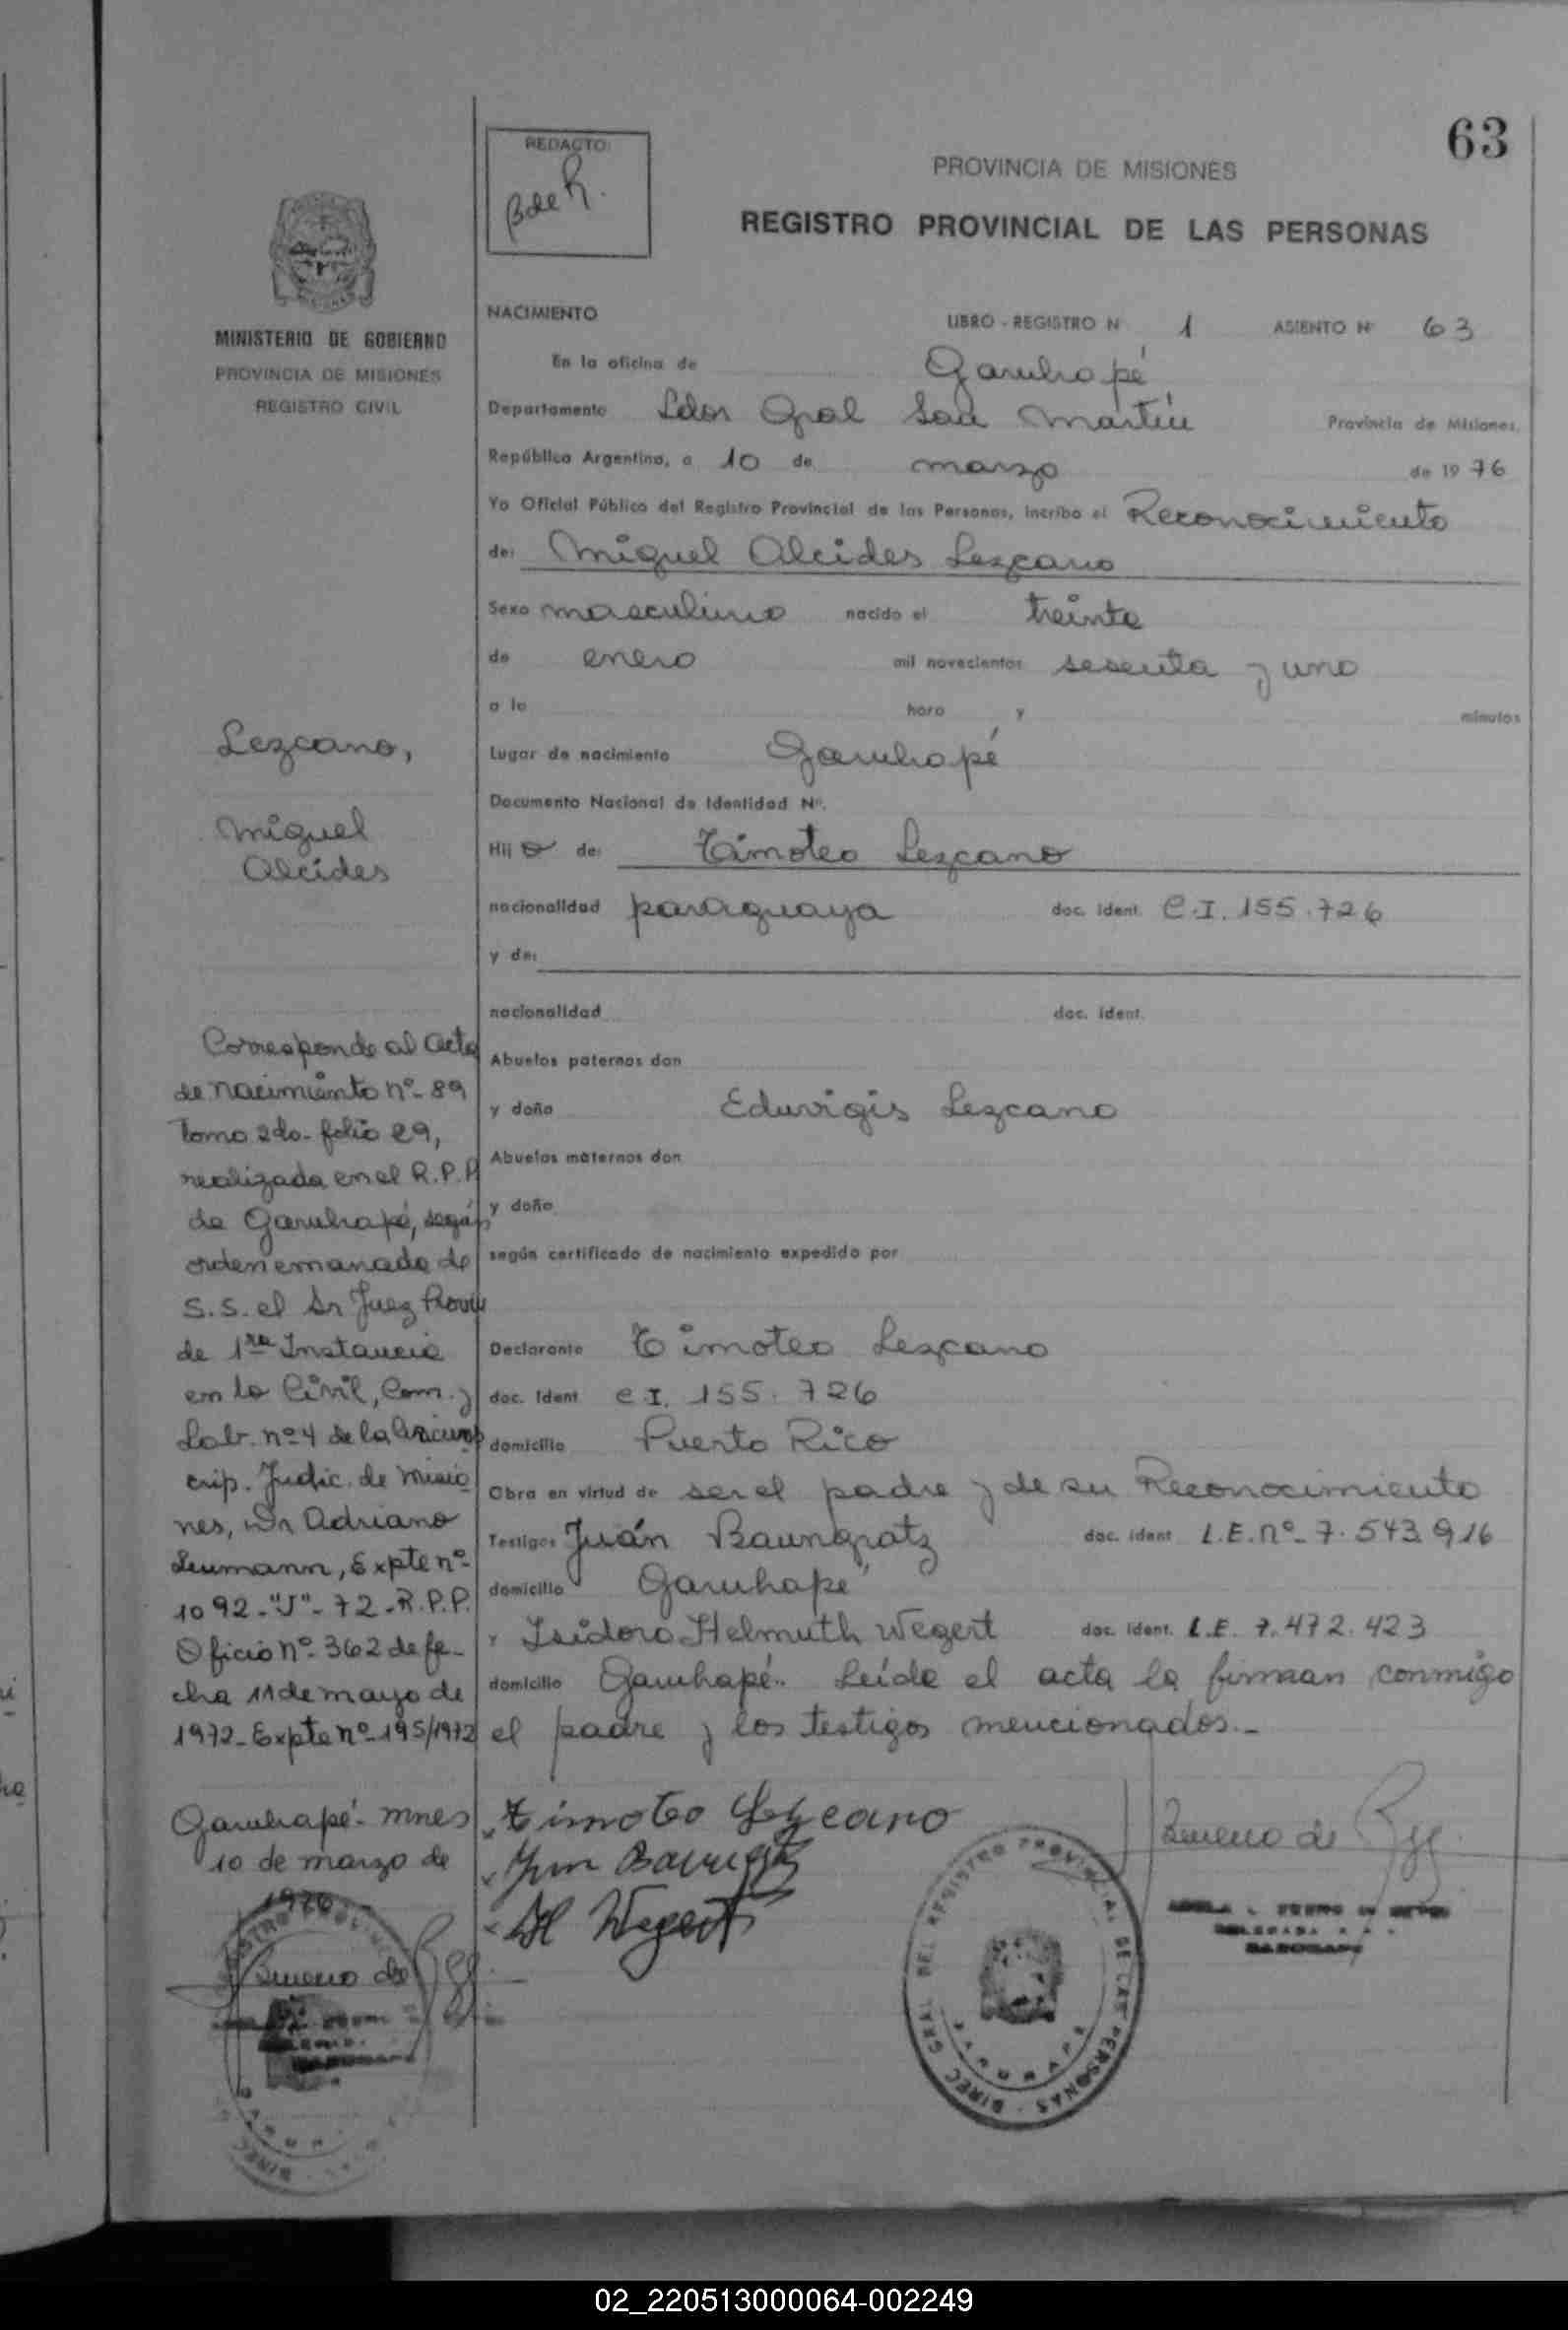 63
REDACTO:
B de R.
PROVINCIA DE MISIONES
REGISTRO PROVINCIAL DE LAS PERSONAS
MINISTERIO DE GOBIERNO
PROVINCIA DE MISIONES
REGISTRO CIVIL
NACIMIENTO LIBRO - REGISTRO N 1 ASIENTO Nº 63
En la oficina de Garuhapé
Departamento Ldor Gral San Martín Provincia de Misiones,
República Argentina, a 10 de marzo de 1976
Yo Oficial Público del Registro Provincial de las Personas, incribo el Reconocimiento
de: Miguel Alcides Lezcano
Sexo masculino nacido el treinta
de enero mil novecientos sesenta y uno
a la hora y minutos
Lugar de nacimiento Garuhapé
Documento Nacional de Identidad Nº.
Hij o de: Timoteo Lezcano
nacionalidad paraguaya doc. ident. C.I. 155.726
y de:
nacionalidad doc. ident.
Abuelos paternos don
y doña Eduvigis Lezcano
Abuelos maternos don
y doña
según certificado de nacimiento expedido por
Declarante Timoteo Lezcano
doc. ident C.I. 155.726
domicilio Puerto Rico
Obra en virtud de ser el padre y de su Reconocimiento
Testigos Juán Baungratz doc. ident L.E. nº- 7.543.916
domicilio Garuhapé
y Isidoro Helmuth Wegert doc. ident. L.E. 7.472.423
domicilio Garuhapé.- Leída el acta la firman conmigo
el padre y los testigos mencionados.-
Timoteo Lezcano
Baungratz
H Wegert
Bueno de
Lezcano,
Miguel
Alcides
Corresponde al acta
de nacimiento nº- 89
Tomo 2do- folio 89,
realizada en el R.P.P
de Garuhapé, según
orden emanada de
S.S. el Sr Juez Provin
de 1ra Instancia
en lo Civil, Com. y
Lab. nº 4 de la Circuns
crip. Judic. de Misio
nes, Dr Adriano
Leumann, Expte nº-
1092-"J"- 72-R.P.P.
Oficio nº- 362 de fe-
cha 11 de mayo de
1972- Expte nº-195/1972
Garuhapé- Mnes
10 de marzo de
1976
Bueno de
DIREC GRAL DEL REGISTRO PROVINCIAL DE LAS PERSONAS
GARUHAPE
02_220513000064-002249